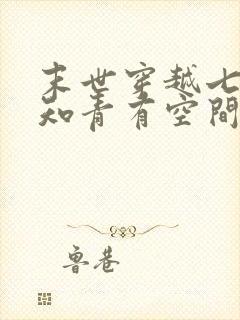 末世穿越七
知青有空間
鲁巷